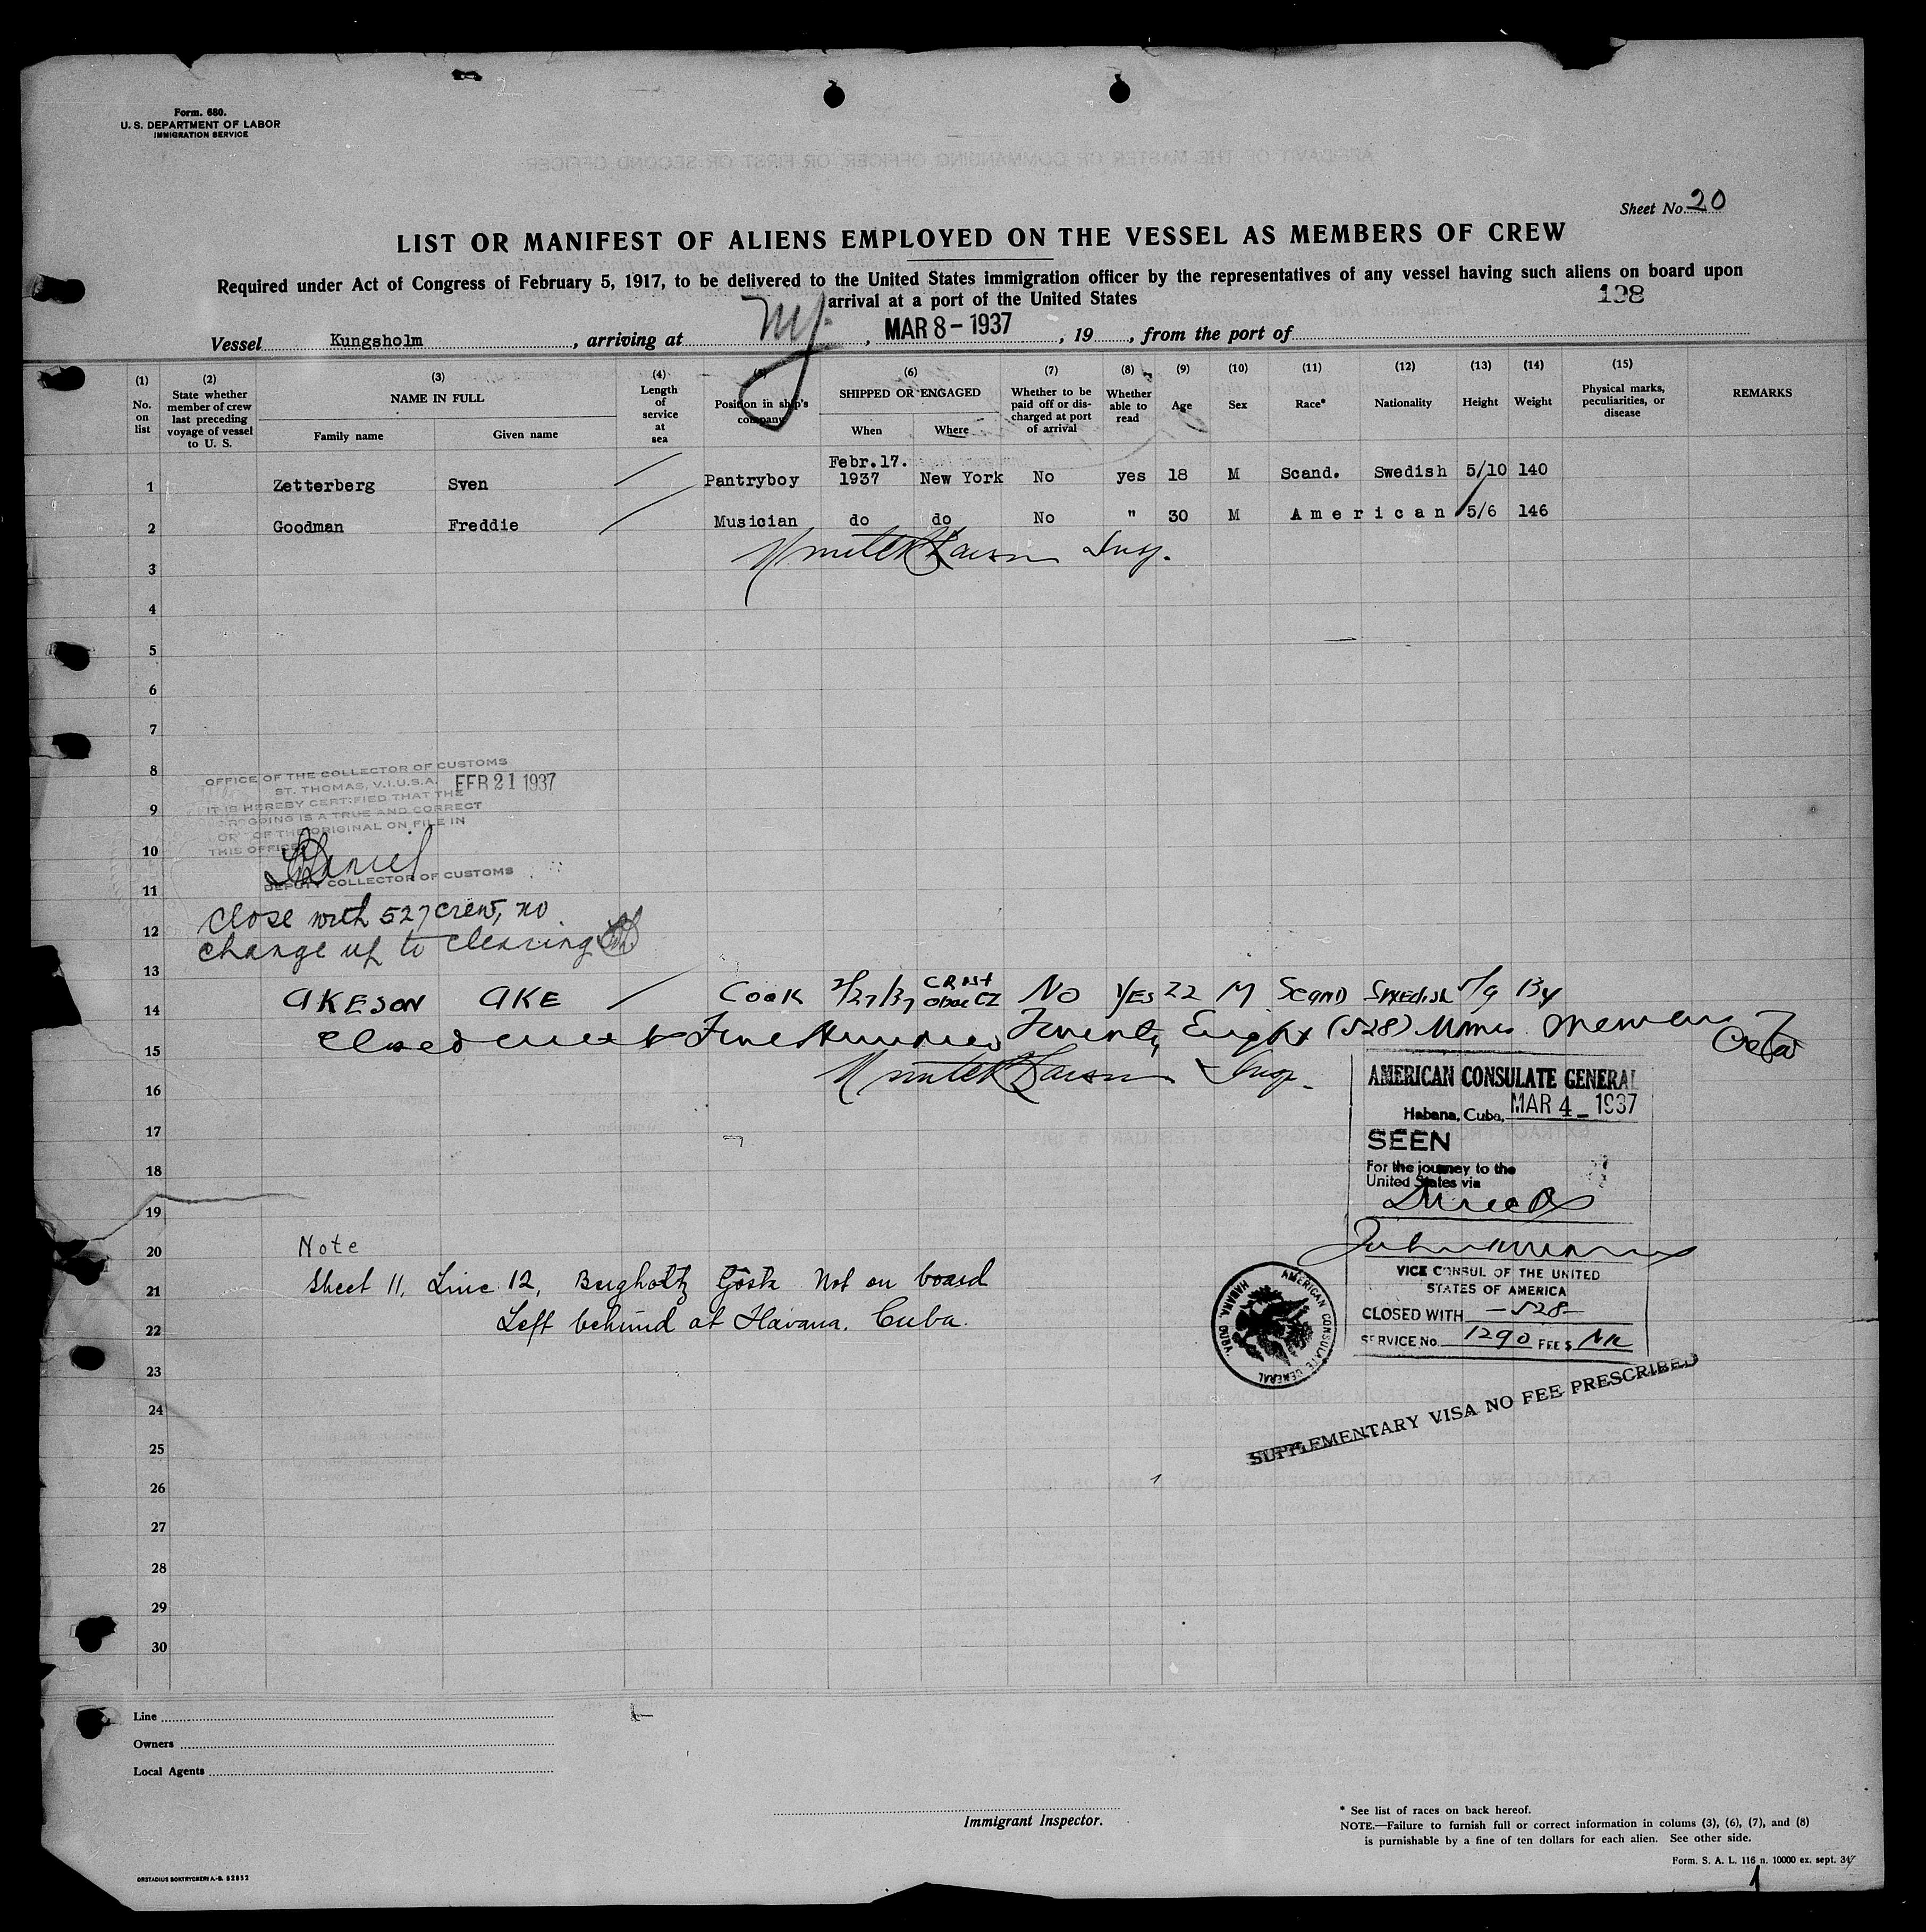 Form. 680.
U. S. DEPARTMENT OF LABOR
IMMIGRATION SERVICE
Sheet No. 20
LIST OR MANIFEST OF ALIENS EMPLOYED ON THE VESSEL AS MEMBERS OF CREW
Required under Act of Congress of February 5, 1917, to be delivered to the United States immigration officer by the representatives of any vessel having such aliens on board upon
arrival at a port of the United States
198
Vessel Kungsholm, arriving at NY, MAR 8 - 1937, 19, from the port of
(1) (2) (3) (4) (5) (6) (7) (8) (9) (10) (11) (12) (13) (14) (15)
No. on list
State whether member of crew last preceding voyage of vessel to U. S.
NAME IN FULL
Family name Given name
Length of service at sea
Position in ship's company
SHIPPED OR ENGAGED
When Where
Whether to be paid off or discharged at port of arrival
Whether able to read
Age
Sex
Race*
Nationality
Height
Weight
Physical marks, peculiarities, or disease
REMARKS
1 Zetterberg Sven Pantryboy Febr.17. 1937 New York No yes 18 M Scand. Swedish 5/10 140
2 Goodman Freddie Musician do do No " 30 M American 5/6 146
Insp.
3
4
5
6
7
8
OFFICE OF THE COLLECTOR OF CUSTOMS
ST. THOMAS, V.I.U.S.A. FEB 21 1937
IT IS HEREBY CERTIFIED THAT THE
9
FOREGOING IS A TRUE AND CORRECT
OF THE ORIGINAL ON FILE IN
THIS OFFICE
10
Daniel
DEPUTY COLLECTOR OF CUSTOMS
11
Close with 527 crew, no
12
change up to clearing
13
14 AKESON AKE Cook 2/27/37 CRIST OBAL CZ No YES 22 M Scand Swedish 5/9 134
15 Closed Five Hundred Twenty Eight (528)
Insp.
16
17
18
19
20
21
22
23
24
25
26
27
28
29
30
AMERICAN CONSULATE GENERAL
Habana, Cuba, MAR 4 - 1937
SEEN
For the journey to the
United States via
Direct
VICE CONSUL OF THE UNITED
STATES OF AMERICA
CLOSED WITH -528-
SERVICE No. 1290 FEE $
AMERICAN CONSULATE GENERAL
HABANA, CUBA
SUPPLEMENTARY VISA NO FEE PRESCRIBED
Note
Sheet 11, Line 12, Bergholtz Gösta Not on board
Left behind at Havana. Cuba.
Line
Owners
Local Agents
Immigrant Inspector.
* See list of races on back hereof.
NOTE.—Failure to furnish full or correct information in colums (3), (6), (7), and (8)
is punishable by a fine of ten dollars for each alien. See other side.
Form. S. A. L. 116 n. 10000 ex. sept. 34
ORSTADIUS BOKTRYCKERI A.-B. 52852